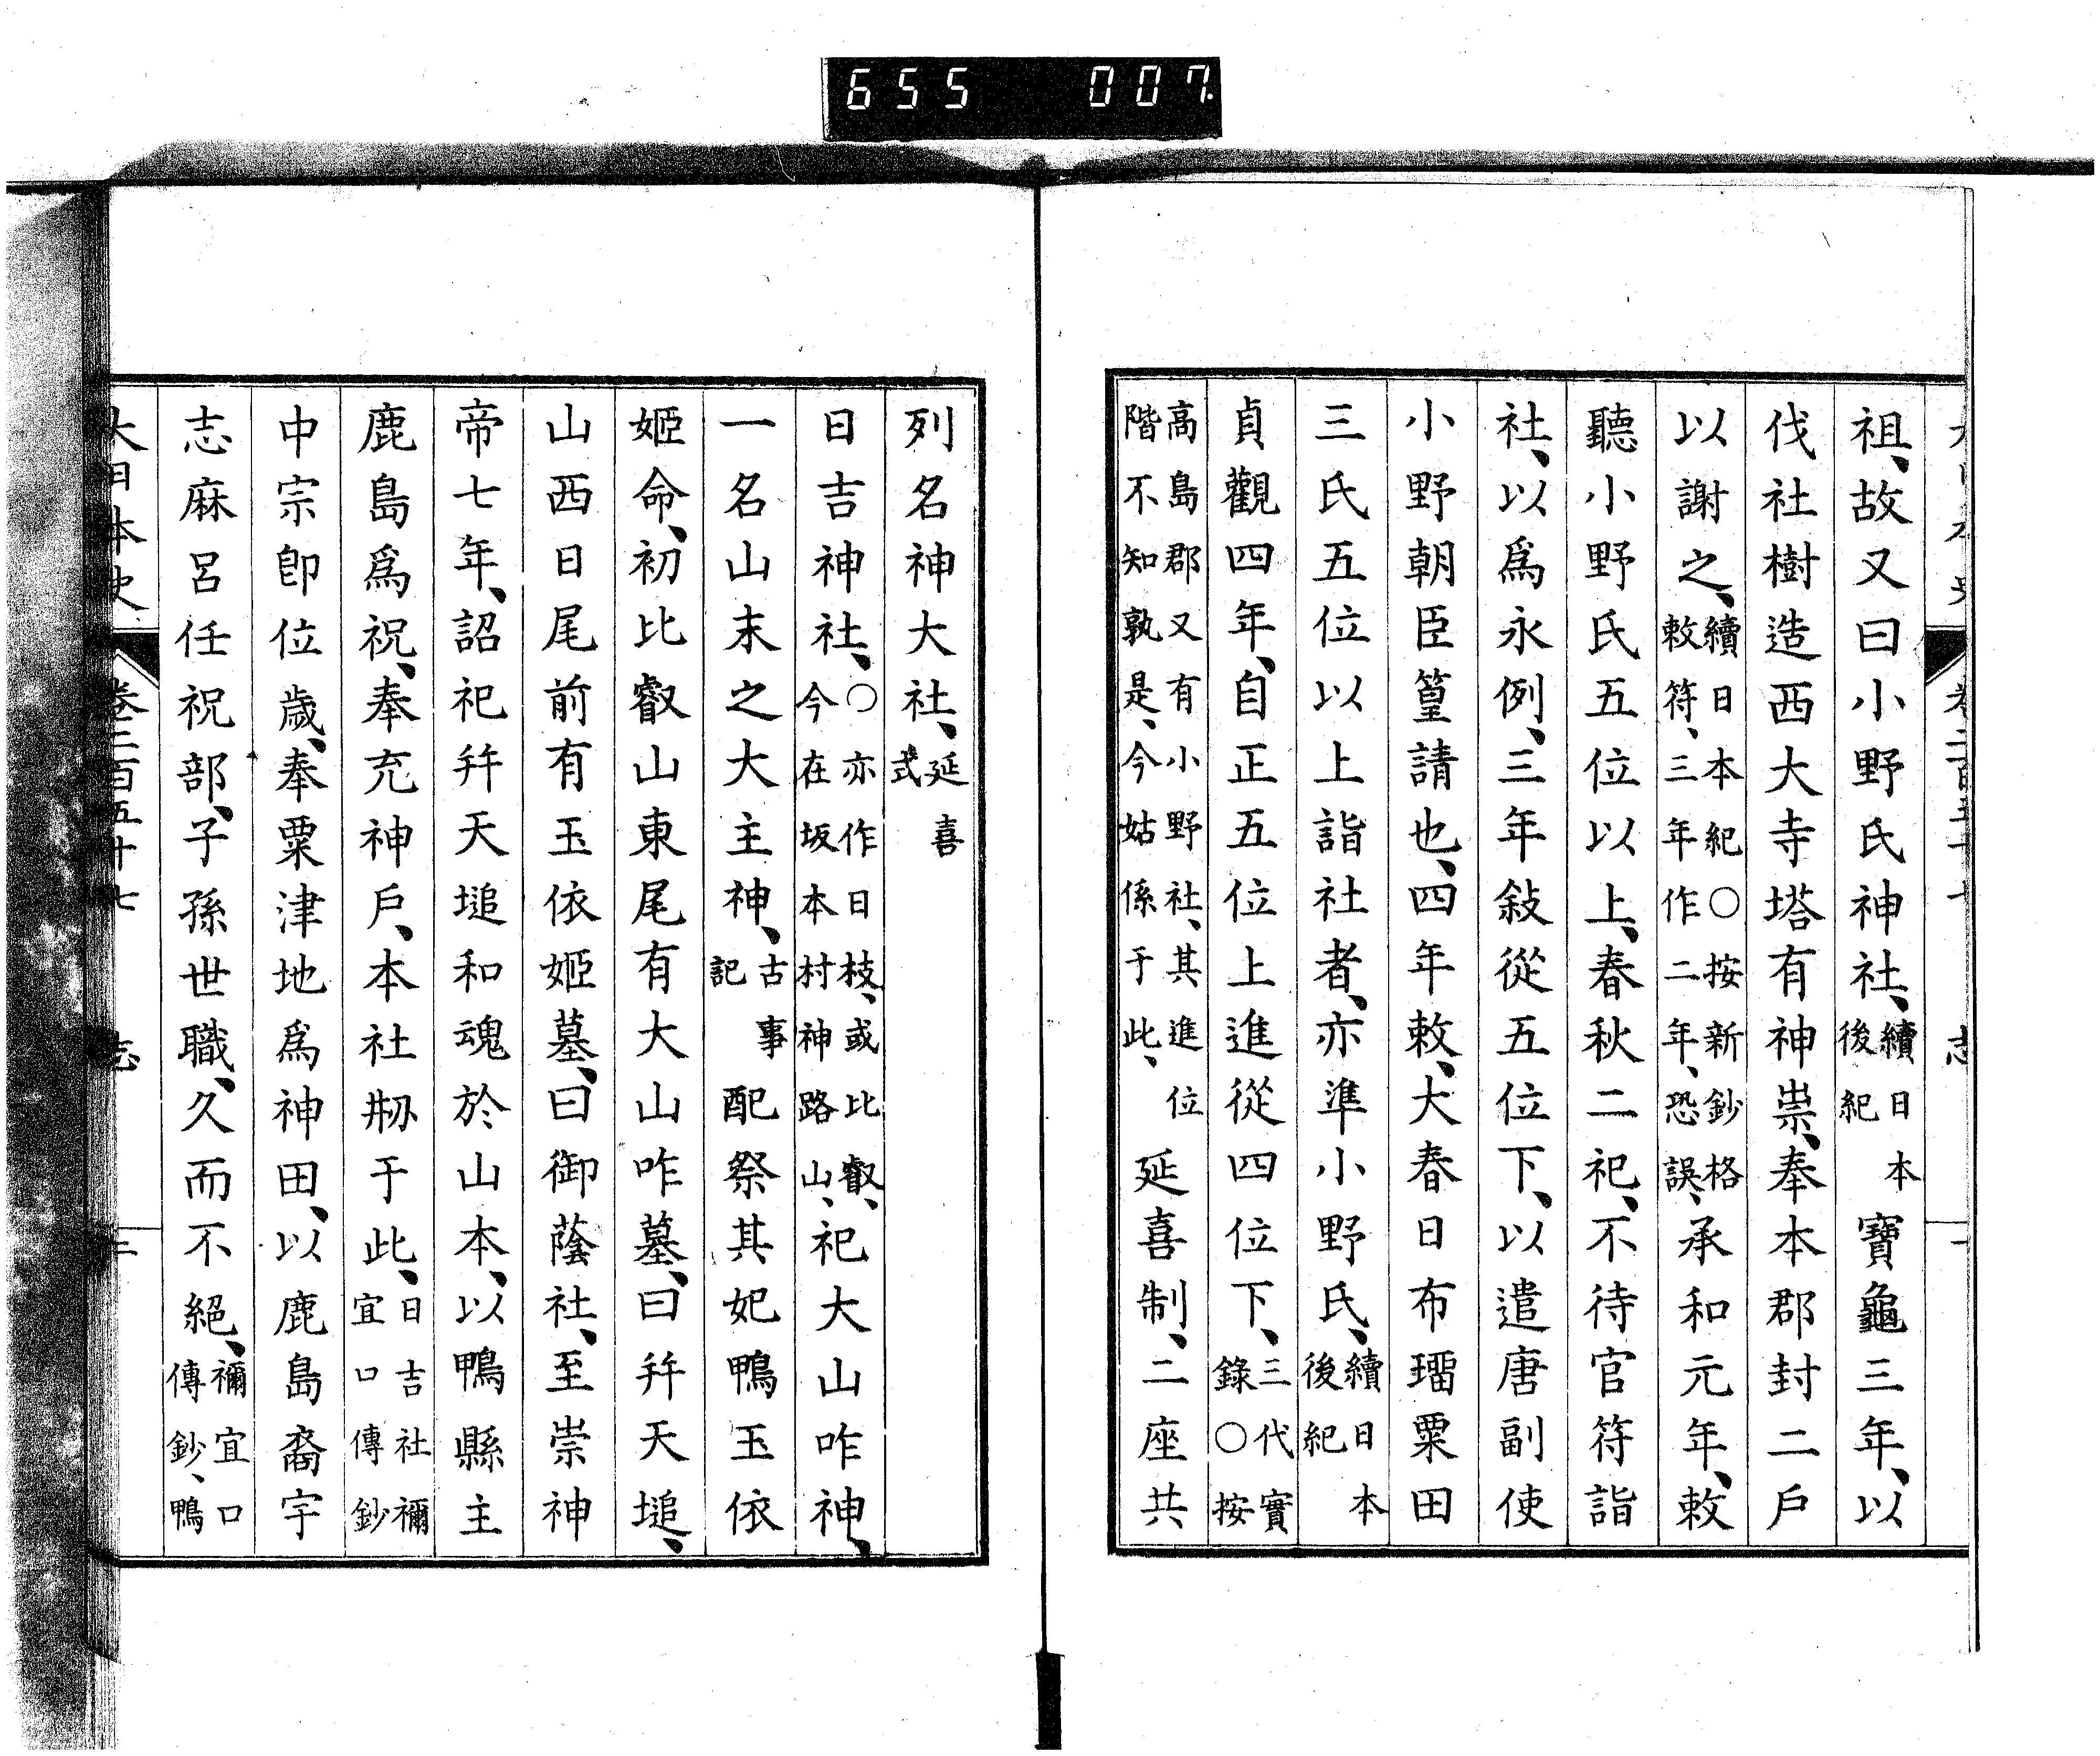 655 007
祖、故又曰小野氏神社、續日本後紀寶龜三年、以
伐社樹造西大寺塔有神祟、奉本郡封二戶
以謝之、續日本紀○按新鈔格敕符、三年作二年、恐誤、承和元年、敕
聽小野氏五位以上、春秋二祀、不待官符詣
社、以爲永例、三年敍從五位下、以遣唐副使
小野朝臣篁請也、四年敕、大春日布瑠粟田
三氏五位以上詣社者、亦準小野氏、續日本後紀
貞觀四年、自正五位上進從四位下、三代實錄○按
高島郡又有小野社、其進位階不知孰是、今姑係于此、延喜制、二座共
列名神大社、延喜式
日吉神社、○亦作日枝、或比叡、今在坂本村神路山、祀大山咋神、
一名山末之大主神、古事記配祭其妃鴨玉依
姬命、初比叡山東尾有大山咋墓、曰幷天塠、
山西日尾前有玉依姬墓、曰御蔭社、至崇神
帝七年、詔祀幷天塠和魂於山本、以鴨縣主
鹿島爲祝、奉充神戶、本社刱于此、日吉社禰宜口傳鈔
中宗卽位歲、奉粟津地爲神田、以鹿島裔宇
志麻呂任祝部、子孫世職、久而不絕、禰宜口傳鈔、鴨
大日本史 卷二百五十七 志 二